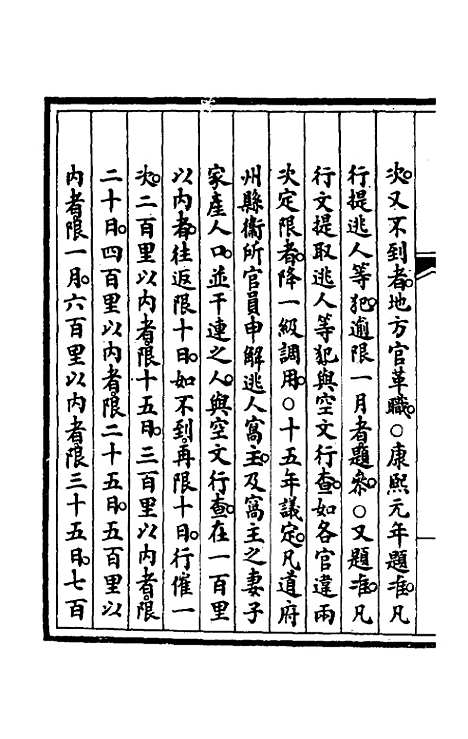 次。又不到者。地方官革職。○康熙元年題准。凡
行提逃人等犯。逾限一月者。題參。○又題准。凡
行文提取逃人等犯。與空文行查。如各官違兩
次定限者。降一級調用。○十五年議定。凡道府
州縣衞所官員申解逃人窩主。及窩主之妻子
家產人口。並干連之人。與空文行查。在一百里
以內者。往返限十日。如不到。再限十日。行催一
次。二百里以內者。限十五日。三百里以內者。限
二十日。四百里以內者。限二十五日。五百里以
內者。限一月。六百里以內者。限三十五日。七百